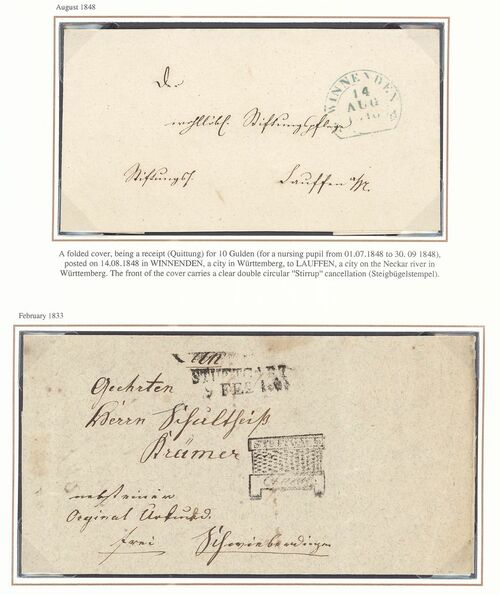 August 1848
WINNENDEN
14
AUG
wohllöbl. Stiftungspflege
Stiftungss.
Lauffen a/N.
A folded cover, being a receipt (Quittung) for 10 Gulden (for a nursing pupil from 01.07.1848 to 30. 09 1848),
posted on 14.08.1848 in WINNENDEN, a city in Württemberg, to LAUFFEN, a city on the Neckar river in
Württemberg. The front of the cover carries a clear double circular "Stirrup" cancellation (Steigbügelstempel).
February 1833
STUTTGART
9 FEB
Geehrten
Herrn Schultheiß
Krämer
STUTTGART
nebst einer
Orginal Urkund.
frei Schwieberdingen